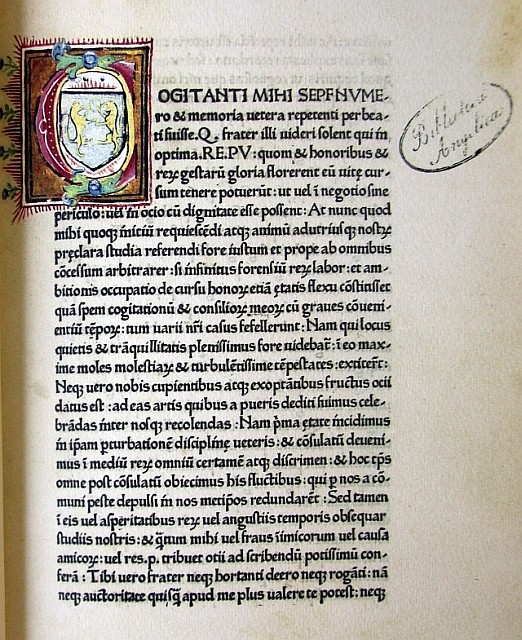 COGITANTI MIHI SEPENVME-
ro & memoria uetera repetenti perbea-
ti fuisse.Q. frater illi uideri solent qui in
optima.RE.PV: quom & honoribus &
reꝝ gestarū gloria florerent eū uitę cur-
sum tenere potuerūt: ut uel ī negotio sine
periculo: uel in ocio cū dignitate esse possent: At nunc quod
mihi quoqꝫ initiū requiescēdi atqꝫ animū ad utriusqꝫ nostꝝ
pręclara studia referendi fore iustum et prope ab omnibus
cōcessum arbitrarer: si infinitus forensiū reꝝ labor: et am-
bitionis occupatio de cursu honoꝝ etiā ętatis flexu cōstitisset
quā spem cogitationū & consilioꝝ meoꝝ cū graues cōueni-
entiū tēpoꝝ: tum uarii nr̄i casus fefellerunt: Nam qui locus
quietis & trāquillitatis plenissimus fore uidebat᷑: ī eo max-
ime moles molestiaꝝ & turbulētissime tēpestates: extiter̄t:
Neqꝫ uero nobis cupientibus atqꝫ exoptātibus fructus ocii
datus est: ad eas artis quibus a pueris dediti fuimus cele-
brādas inter nosqꝫ recolendas: Nam p̄ma ętate incidimus
in ip̄am ꝑturbationē disciplinę ueteris: & cōsulatū deueni-
mus ī mediū reꝝ omniū certamē atqꝫ discrimen: & hoc tp̄s
omne post cōsulatū obiecimus his fluctibus: qui ꝑ nos a cō-
muni peste depulsi in nos metip̄os redundarēt: Sed tamen
ī eis uel asperitatibus reꝝ uel angustiis temporis obsequar
studiis nostris: & q̄tum mihi uel fraus īimicorum uel causa
amicoꝝ: uel res.p. tribuet otii ad scribendū potissimū con-
ferā: Tibi uero frater neqꝫ hortanti deero neqꝫ rogāti: nā
neqꝫ auctoritate quisq̄ apud me plus ualere te potest: neqꝫ
Bibliotheca
Angelica